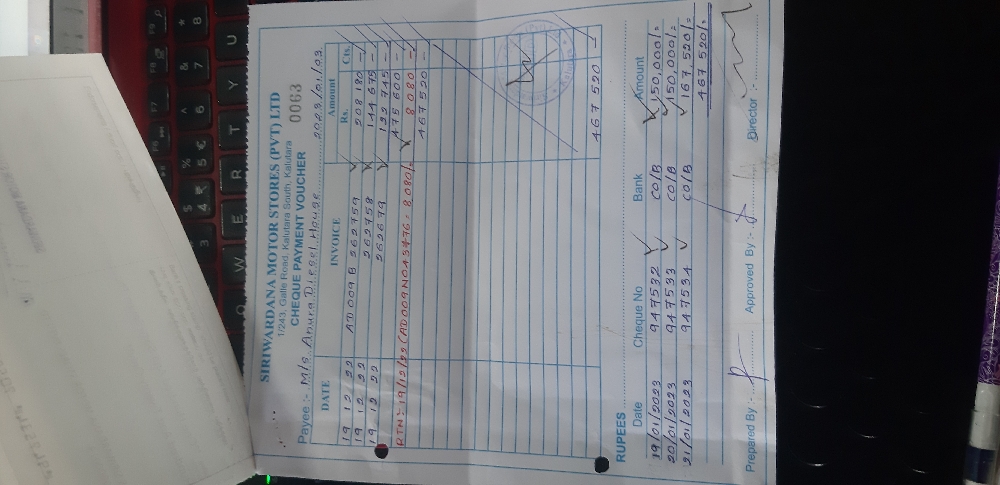 SIRIWARDANA MOTOR STORES (PVT) LTD
1/243, Galle Road, Kalutara South, Kalutara
CHEQUE PAYMENT VOUCHER 0063
Payee :- M/s. Anura Diesel House 2023/01/03
DATE INVOICE Amount
Rs. Cts.
19 12 22 AD009B 262759 208 180 —
19 12 22 262758 144 675 —
19 12 22 262679 122 745 —
475 600 —
RTN :- 19/12/22 (AD009N043476 = 8080/= 8.080 —
467520 —
467 520 —
RUPEES
Date Cheque No Bank Amount
19/01/2023 947532 CO/B 150,000/=
20/01/2023 947533 CO/B 150,000/=
21/01/2023 947534 CO/B 167 520/=
467 520/=
Prepared By :- Approved By :- Director :-